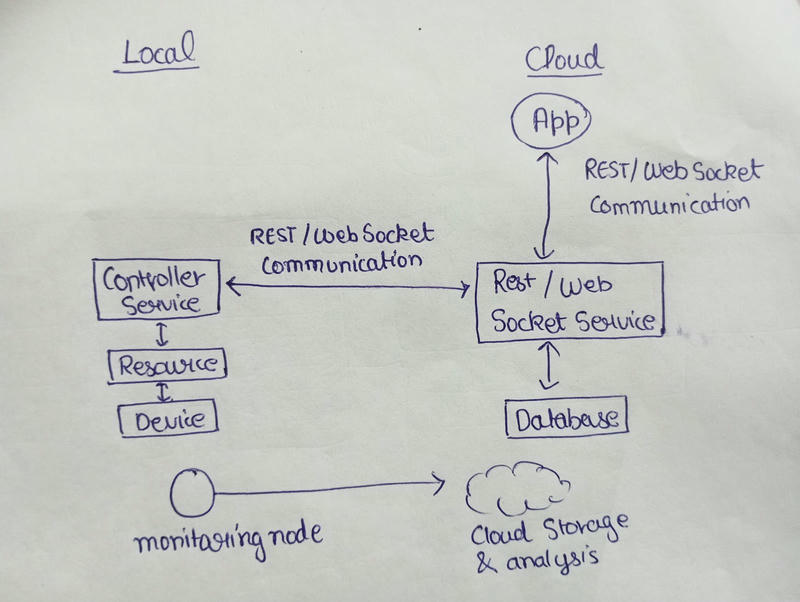 Local
Cloud
App
REST/Web Socket
Communication
REST/Web Socket
Communication
Controller
Service
Rest/Web
Socket Service
Resource
Device
Database
monitaring node
Cloud Storage
& analysis